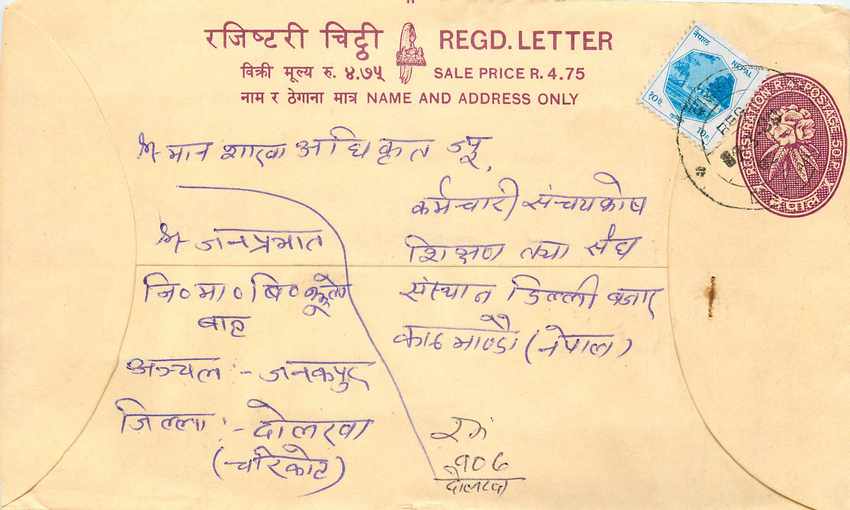 रजिष्टरी चिट्ठी REGD. LETTER
विक्री मूल्य रु. ४.७५ SALE PRICE R. 4.75
नाम र ठेगाना मात्र NAME AND ADDRESS ONLY
नेपाल NEPAL
१०पै 10P
REGISTRATION R. 4 POSTAGE 50P.
नेपाल
श्री मान शाखा अधिकृत ज्यू,
कर्मचारी संचयकोष
शिक्षण तथा संघ
संस्थान डिल्ली बजार
काठमाण्डौ (नेपाल)
श्री जनप्रभात
नि० मा० बि०
बाट
अञ्चल :- जनकपुर
जिल्ला :- दोलखा
(चरिकोट)
रनं
१०६
दोलखा